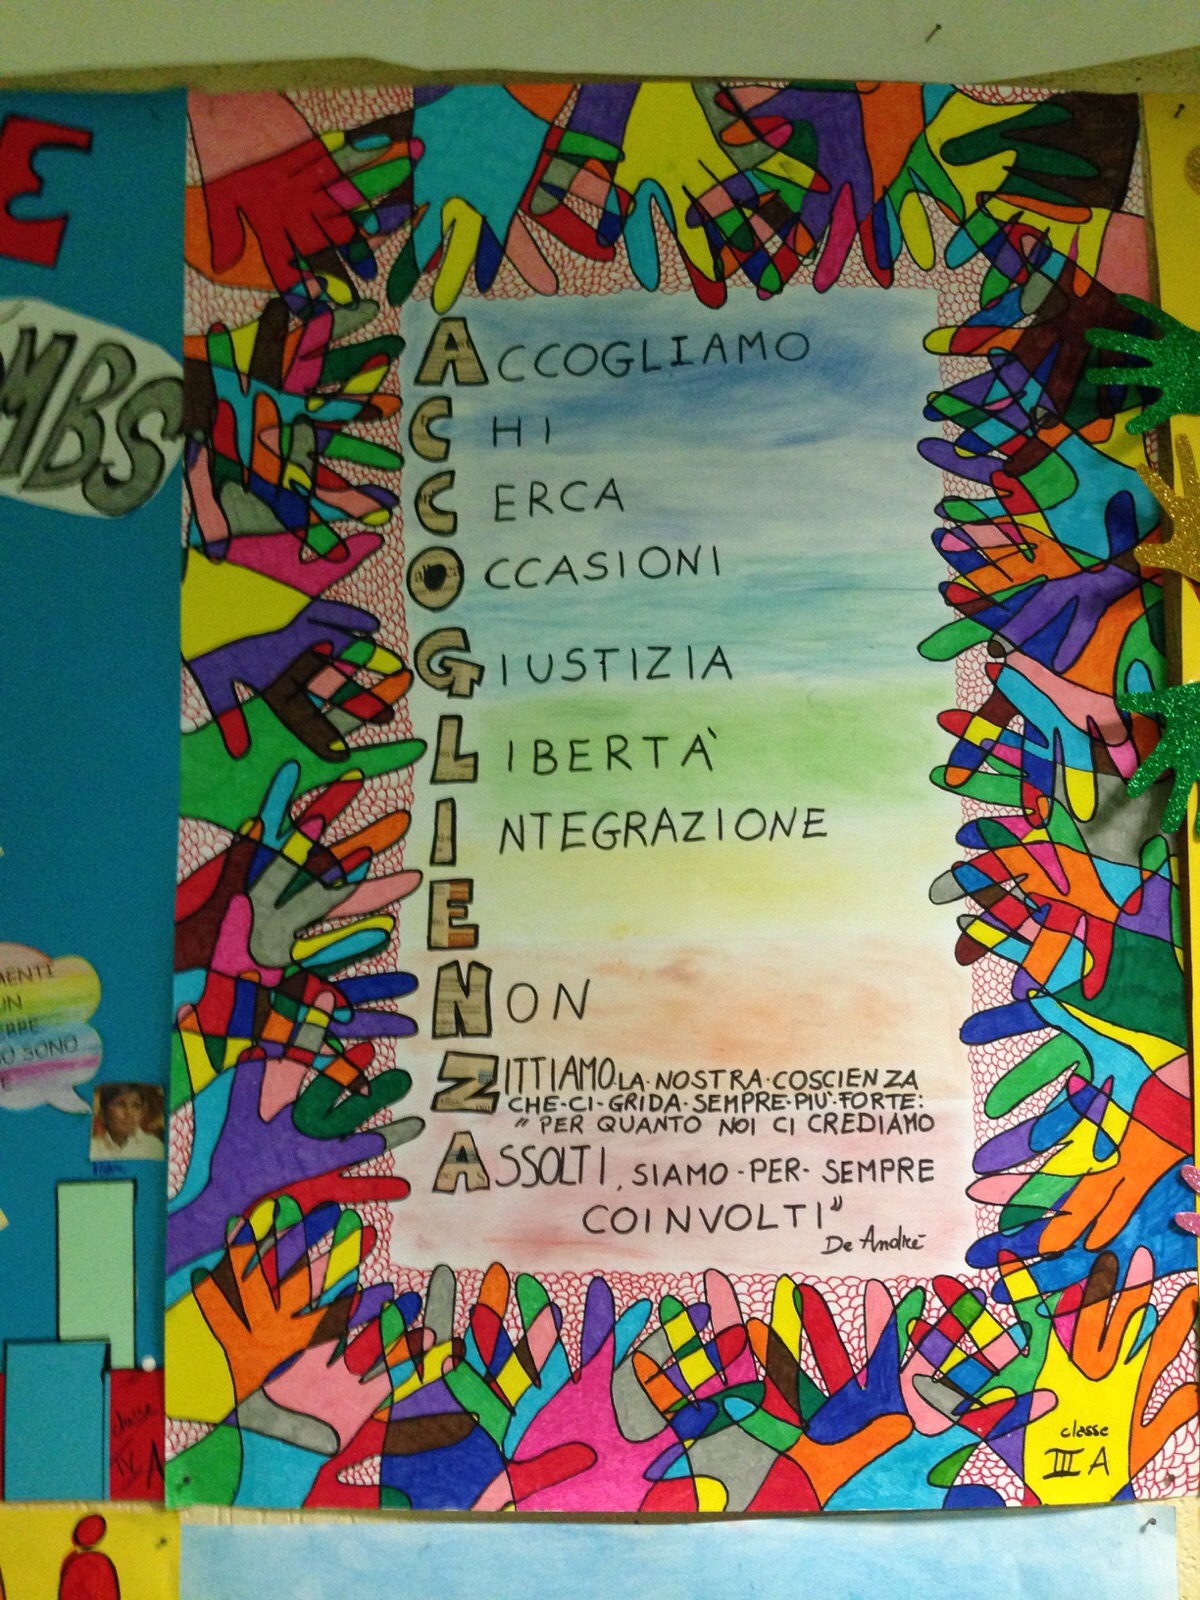 E
MBS
ACCOGLIAMO
CHI
CERCA
OCCASIONI
GIUSTIZIA
LIBERTÀ
INTEGRAZIONE
E
NON
ZITTIAMO·LA·NOSTRA·COSCIENZA
CHE·CI·GRIDA·SEMPRE·PIU'·FORTE:
"PER QUANTO NOI CI CREDIAMO
ASSOLTI, SIAMO·PER·SEMPRE
COINVOLTI"
De Andrè
classe
III A
MENTI
UN
SONO
E
classe
IV A